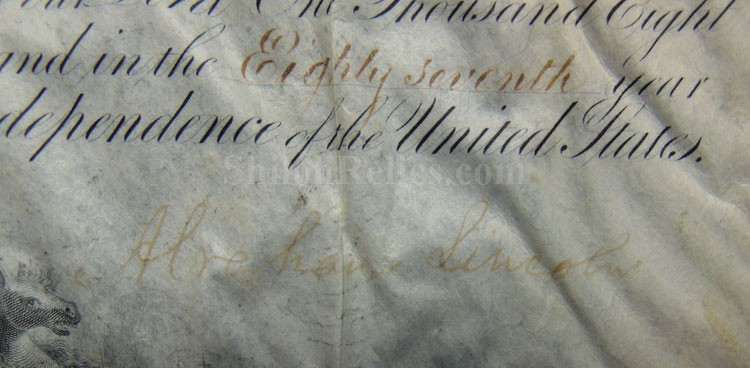 Lord One Thousand Eight
and in the Eighty seventh year
dependence of the United States.
ShilohRelics.com
Abraham Lincoln